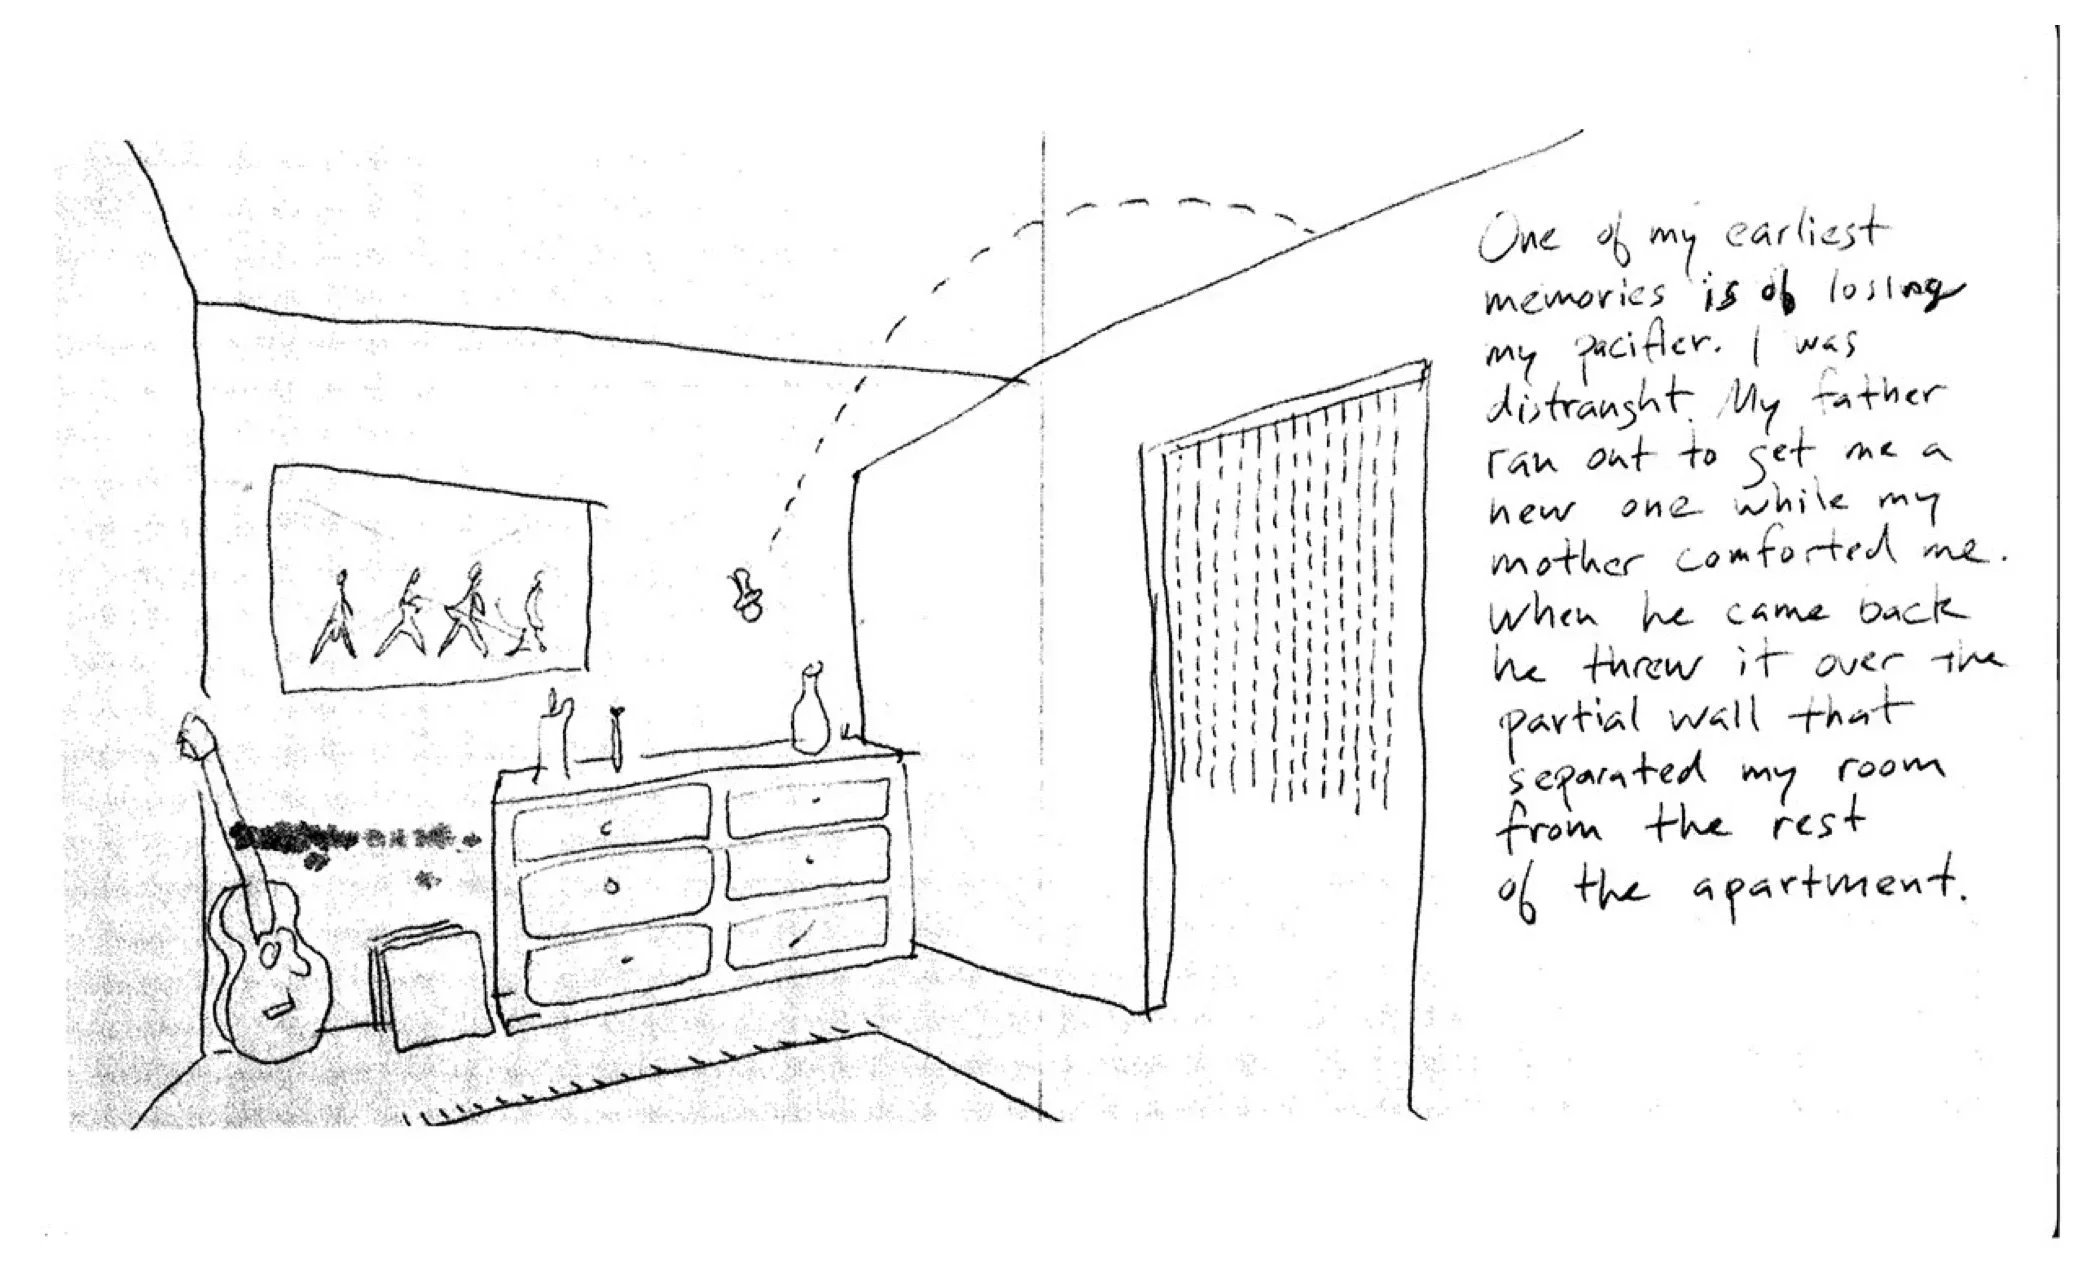 One of my earliest
memories is of losing
my pacifier. I was
distraught. My father
ran out to get me a
new one while my
mother comforted me.
When he came back
he threw it over the
partial wall that
separated my room
from the rest
of the apartment.